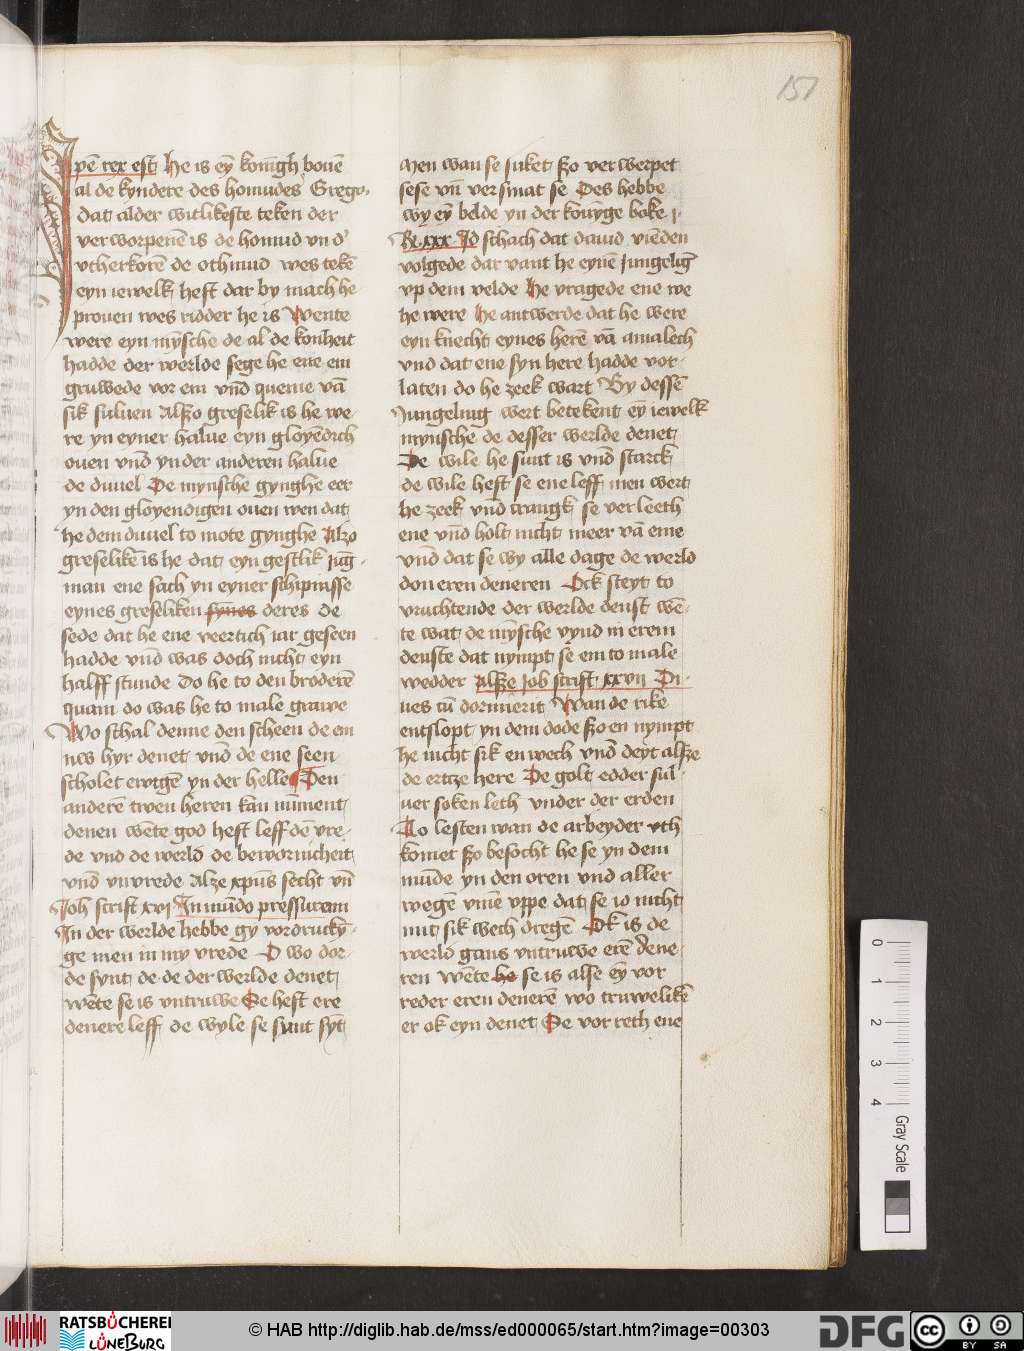 151
Ipē rex est He is eȳ konīgh bouē
al de kyndere des homudes Grego
dat alder witlikeste teken der
verworpenē is de homud vn d'
vtherkorē de othmud wes tekē
eyn iewelk heft dar by mach he
prouen wes ridder he is Wente
were eyn mȳsche de al de konheit
hadde der werlde sege he ene em
gruwede vor em vnd queme vā
sik suluen Alßo greselik is he we
re yn eyner halue eyn gloyēdich
ouen vnd yn der anderen halue
de duuel De mynsche gynghe eer
yn den gloyendigen ouen wen dat
he dem duuel to mote gynghe Alzo
greselikē is he dat eyn gestlik jūg
man ene sach yn eyner schipnisse
eynes greseliken synes deres De
sede dat he ene veertich iar geseen
hadde vnd was doch nicht eyn
halff stunde Do he to den broderē
quam do was he to male grawe
Wo schal denne den scheen de em
nw hyr denet vnd de ene seen
scholet ewigē yn der helle Den
anderē twen heren kan nūment
denen wēte god heft leff dē vre
de vnd de werld de bewornicheit
vnd vnvrede Alze xpūs secht vn̄
Joh̄ scrift xvi In mūdo pressuram
In der werlde hebbe gy vordruckȳ
ge men in my vrede O wo dor
de synt de de der werlde denet
wēte se is vntruwe Se heft ere
denere leff de wyle se sunt sȳt
Men wan se suket ßo verwerpet
sese vn̄ versmat se Des hebbe
wy eȳ belde yn der konȳge boke j
R. xxx Id schach dat dauid viēden
volgede dar vant he eynē jungeligͤ
vp dem velde He vragede ene we
he were He antwerde dat he were
eyn knecht eynes herē vā amalech
vnd dat ene syn here hadde vor
laten do he zeek wart By dessē
Jungeling wert betekent eȳ iewelk
mynsche de desser werlde denet
De wile he sunt is vnd starck
de wile heft se ene leff men wert
he zeek vnd crangk se verleeth
ene vnd holt nicht meer vā eme
vnd dat se wy alle dage de werld
don eren deneren Ock steyt to
vruchtende der werlde denst wē
te wat de mȳsche vynd in erem
denste dat nympt se em to male
wedder Alße Job scrift xxvii Di
ues cū dormierit Wan de rike
entslopt yn dem dode ßo en nympt
he nicht sik en wech vnd deyt alsze
de ertze here De golt edder sul
uer soken leth vnder der erden
To lesten wan de arbeyder vth
komet ßo besocht he se yn dem
mūde yn den oren vnd aller
wegē vmē vppe dat se io nicht
mit sik wech dregē Ok is de
werld gans vntruwe erē dene
ren wēte he se is alse eȳ vor
reder eren denerē wo truweliken
er ok eyn denet Se vorreth ene
0
1
2
3
4
Gray Scale
RATSBÜCHEREI
LÜNEBURG
© HAB http://diglib.hab.de/mss/ed000065/start.htm?image=00303
DFG
CC BY SA